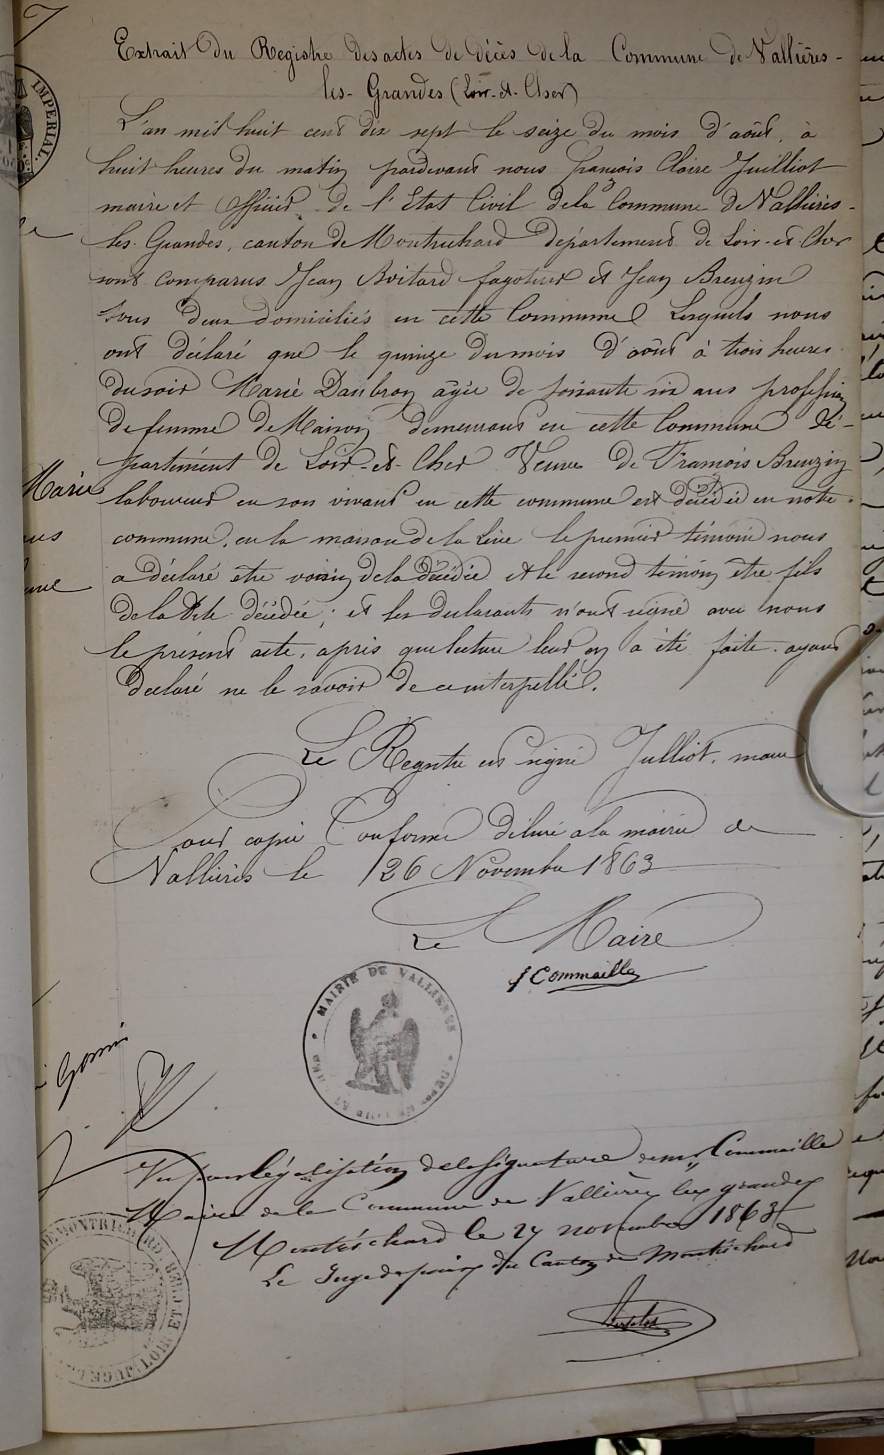 Extrait du Registre des actes de décès de la Commune de Vallières-
les-Grandes (Loir-et-Cher)
L'an mil huit cent dix sept le seize du mois d'août, à
huit heures du matin pardevant nous françois Claire Juilliot
maire et officier de l'Etat Civil de la Commune de Vallières-
les-Grandes, canton de Montrichard département de Loir-et-Cher
sont comparus Jean Boitard fagoteur et Jean Breuzin
tous deux domiciliés en cette Commune Lesquels nous
ont déclaré que le quinze du mois d'août à trois heures
du soir Marie Daubron âgée de soixante six ans profession
de femme de Maison demeurant en cette Commune Dé-
partement de Loir-et-Cher Veuve de François Breuzin
laboureur en son vivant en cette commune est décédée en notre
commune, en la maison de la le premier témoin nous
a déclaré être voisin de la décédée et le second témoin être fils
de la dite décédée; et les declarants n'ont signé avec nous
le présent acte, après que lecture leur en a été faite. ayant
declaré ne le savoir de ce interpellé.
Le Registre est signé Julliot. maire
Pour copie Conforme délivré a la mairie de
Vallières le 26 Novembre 1863
Le Maire
Commaille
MAIRIE DE VALLIERES
Vu pour légalisation de la signature de mr Commaille
Maire de la Commune de Vallières les grandes
Montrichard le 27 novembre 1863
Le Juge de paix du Canton de Montrichard
IMPERIAL.
Marie
DE MONTRICHARD
LOIR ET CHER